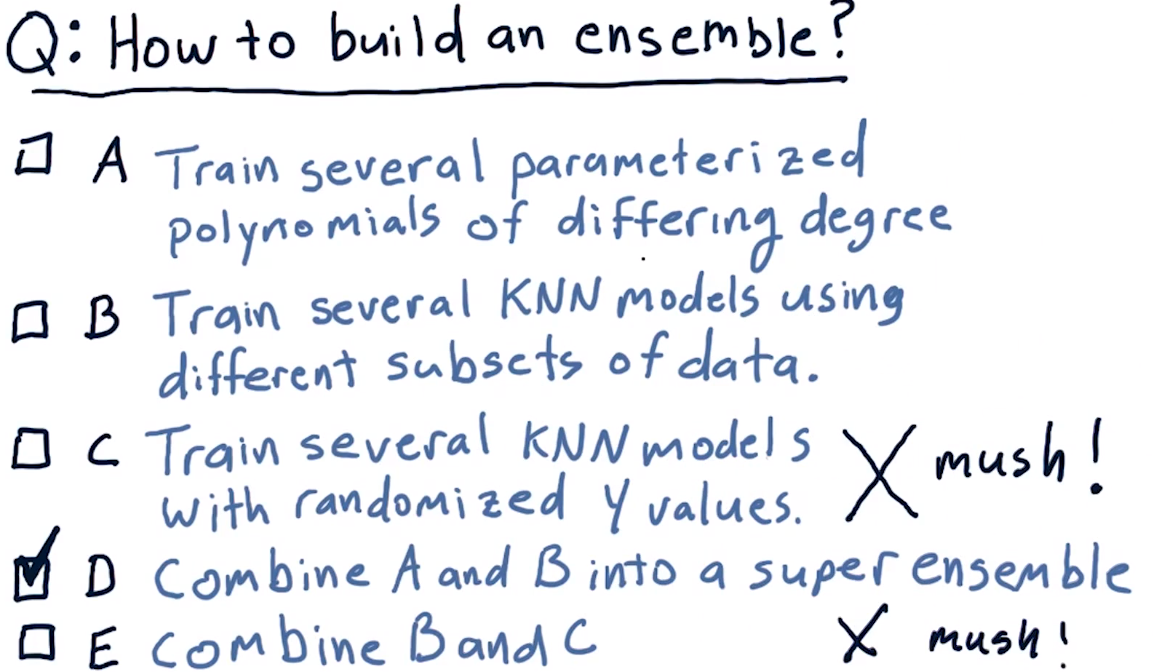 Q: How to build an ensemble?
A Train several parameterized
polynomials of differing degree
B Train several KNN models using
different subsets of data.
C Train several KNN models
with randomized Y values.
X mush!
D Combine A and B into a super ensemble
E Combine B and C
X mush!